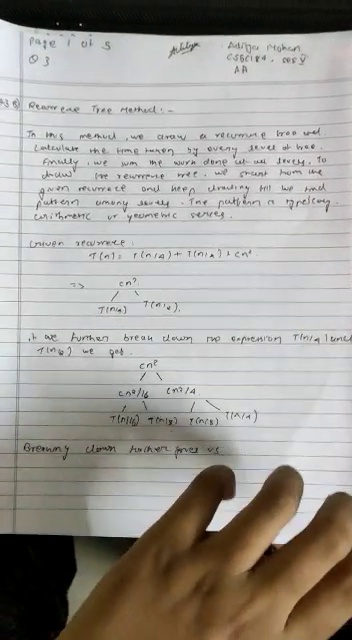 Page 1 of 5
Aditya Mohan
Q3
CSE
AA
Recurrence Tree Method: -
In this method, we draw a recurrence tree and
calculate the time taken by every level of tree.
Finally, we sum the work done at all levels. To
draw the recurrence tree, we start from the
given recurrence and keep drawing till we find
pattern among levels. The pattern is typically
arithmetic or geometric series.
Given recurrence:
T(n) = T(n/4) + T(n/2) + cn²
=> cn²
T(n/4) T(n/2)
If we further break down the expression T(n/4) and
T(n/2) we get.
cn²
cn²/16 cn²/4
T(n/16) T(n/8) T(n/8) T(n/4)
Breaking down further gives us